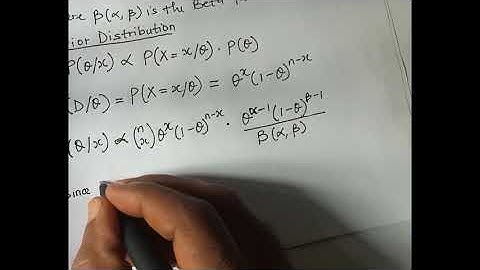 ere β(α, β) is the Beta
ior Distribution
P(θ/x) ∝ P(X = x/θ) · P(θ)
(D/θ) = P(X = x/θ) = θ^x (1-θ)^{n-x}
(θ/x) ∝ (n x) θ^x (1-θ)^{n-x} · θ^{α-1} (1-θ)^{β-1} / β(α, β)
since